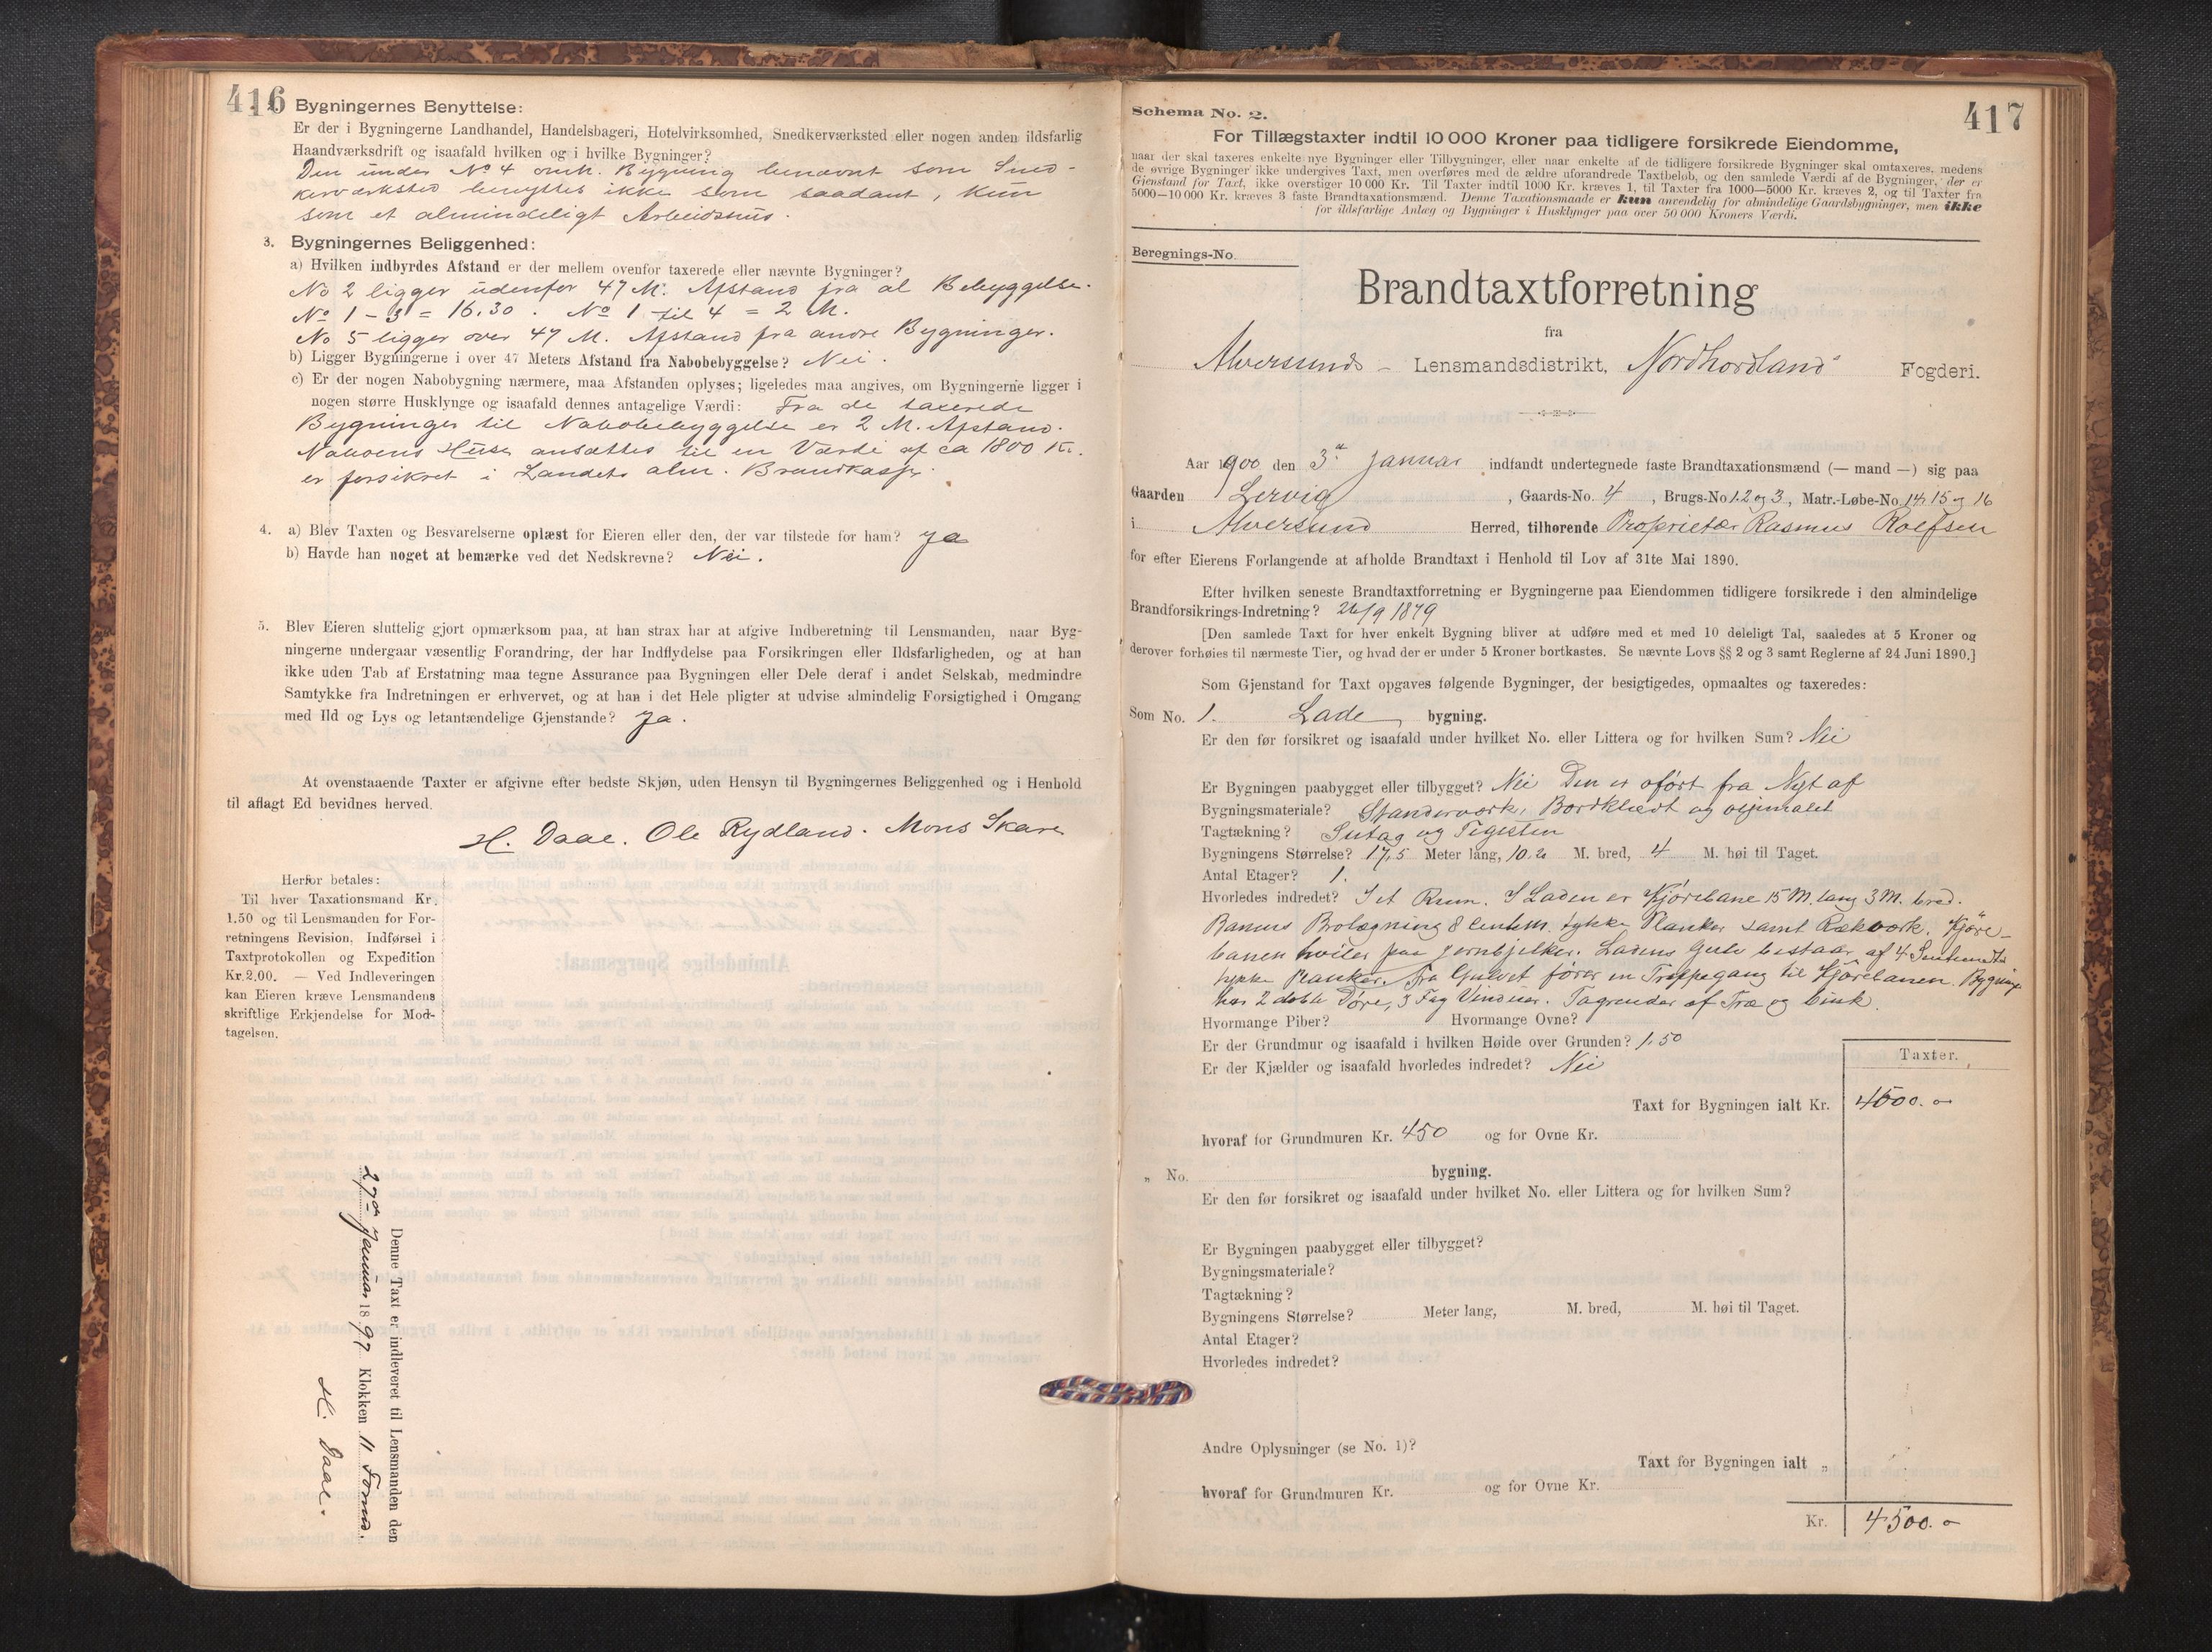 416
Bygningernes Benyttelse:
Er der i Bygningerne Landhandel, Handelsbageri, Hotelvirksomhed, Snedkerværksted eller nogen anden ildsfarlig
Haandværksdrift og isaafald hvilken og i hvilke Bygninger?
Den under No 4 omh. Bygning benævnt som Sned-
kerværksted benyttes ikke som saadant, kun
som et almindeligt Arbeidshus.
3. Bygningernes Beliggenhed:
a) Hvilken indbyrdes Afstand er der mellem ovenfor taxerede eller nævnte Bygninger?
No 2 ligger udenfor 47 M. Afstand fra al Bebyggelse.
No 1 - 3 = 16,30. No 1 til 4 = 2 M.
No 5 ligger over 47 M. Afstand fra andre Bygninger.
b) Ligger Bygningerne i over 47 Meters Afstand fra Nabobebyggelse? Nei.
c) Er der nogen Nabobygning nærmere, maa Afstanden oplyses; ligeledes maa angives, om Bygningerne ligger i
nogen større Husklynge og isaafald dennes antagelige Værdi: Fra de taxerede
Bygninger til Nabobebyggelse er 2 M. Afstand.
Naboens Huse ansættes til en Værdi af ca 1800 Kr.
er forsikret i Landets alm. Brandkasse.
4. a) Blev Taxten og Besvarelserne oplæst for Eieren eller den, der var tilstede for ham? Ja
b) Havde han noget at bemærke ved det Nedskrevne? Nei.
5. Blev Eieren sluttelig gjort opmærksom paa, at han strax har at afgive Indberetning til Lensmanden, naar Byg-
ningerne undergaar væsentlig Forandring, der har Indflydelse paa Forsikringen eller Ildsfarligheden, og at han
ikke uden Tab af Erstatning maa tegne Assurance paa Bygningen eller Dele deraf i andet Selskab, medmindre
Samtykke fra Indretningen er erhvervet, og at han i det Hele pligter at udvise almindelig Forsigtighed i Omgang
med Ild og Lys og letantændelige Gjenstande? Ja.
At ovenstaaende Taxter er afgivne efter bedste Skjøn, uden Hensyn til Bygningernes Beliggenhed og i Henhold
til aflagt Ed bevidnes herved.
H. Daae. Ole Rydland. Mons Skare
Herfor betales:
Til hver Taxationsmand Kr.
1.50 og til Lensmanden for For-
retningens Revision, Indførsel i
Taxtprotokollen og Expedition
Kr. 2.00. — Ved Indleveringen
kan Eieren kræve Lensmandens
skriftlige Erkjendelse for Mod-
tagelsen.
Denne Taxt er indleveret til Lensmanden den
27de Januar 1897 Klokken 11 Formd.
H. Daae.
417
Schema No. 2.
For Tillægstaxter indtil 10 000 Kroner paa tidligere forsikrede Eiendomme,
naar der skal taxeres enkelte nye Bygninger eller Tilbygninger, eller naar enkelte af de tidligere forsikrede Bygninger skal omtaxeres, medens
de øvrige Bygninger ikke undergives Taxt, men overføres med de ældre uforandrede Taxtbeløb, og den samlede Værdi af de Bygninger, der er
Gjenstand for Taxt, ikke overstiger 10 000 Kr. Til Taxter indtil 1000 Kr. kræves 1, til Taxter fra 1000—5000 Kr. kræves 2, og til Taxter fra
5000—10 000 Kr. kræves 3 faste Brandtaxationsmænd. Denne Taxationsmaade er kun anvendelig for almindelige Gaardsbygninger, men ikke
for ildsfarlige Anlæg og Bygninger i Husklynger paa over 50 000 Kroners Værdi.
Beregnings-No.
Brandtaxtforretning
fra
Alversunds - Lensmandsdistrikt, Nordhordland Fogderi.
Aar 1900 den 3die Januar indfandt undertegnede faste Brandtaxationsmænd (— mand —) sig paa
Gaarden Lervig, Gaards-No. 4, Brugs-No 1.2 og 3, Matr.-Løbe-No 14, 15 og 16
i Alversund Herred, tilhørende Proprietær Rasmus Rolfsen
for efter Eierens Forlangende at afholde Brandtaxt i Henhold til Lov af 31te Mai 1890.
Efter hvilken seneste Brandtaxtforretning er Bygningerne paa Eiendommen tidligere forsikrede i den almindelige
Brandforsikrings-Indretning? 26/9 1879
[Den samlede Taxt for hver enkelt Bygning bliver at udføre med et med 10 deleligt Tal, saaledes at 5 Kroner og
derover forhøies til nærmeste Tier, og hvad der er under 5 Kroner bortkastes. Se nævnte Lovs §§ 2 og 3 samt Reglerne af 24 Juni 1890.]
Som Gjenstand for Taxt opgaves følgende Bygninger, der besigtigedes, opmaaltes og taxeredes:
Som No. 1. Lade bygning.
Er den før forsikret og isaafald under hvilket No. eller Littera og for hvilken Sum? Nei
Er Bygningen paabygget eller tilbygget? Nei Den er oført fra Nyt af
Bygningsmateriale? Standerværk, Bordklædt og oljemalet
Tagtækning? Sutag og Tegisten
Bygningens Størrelse? 17,5 Meter lang, 10,2 M. bred, 4 M. høi til Taget.
Antal Etager? 1.
Hvorledes indredet? I et Rum. I Laden er Kjørebane 15 M. lang 3 M. bred.
Banens Brolægning 8 Centm. tykke Planker samt Rækværk. Kjøre-
banen hviler paa Jernbjelker. Ladens Gulv bestaar af 4 Sentimeter
tykke Planker. Fra Gulvet fører en Trappegang til Kjørebanen. Bygningen
har 2 doble Døre, 3 Fag Vinduer. Tagrender af Træ og Sink.
Hvormange Piber? Hvormange Ovne?
Er der Grundmur og isaafald i hvilken Høide over Grunden? 1.50
Er der Kjælder og isaafald hvorledes indredet? Nei
Taxter.
Taxt for Bygningen ialt Kr. 4500. -
hvoraf for Grundmuren Kr. 450 og for Ovne Kr.
„ No. bygning.
Er den før forsikret og isaafald under hvilket No. eller Littera og for hvilken Sum?
Er Bygningen paabygget eller tilbygget?
Bygningsmateriale?
Tagtækning?
Bygningens Størrelse? Meter lang, M. bred, M. høi til Taget.
Antal Etager?
Hvorledes indredet?
Andre Oplysninger (se No. 1)?
Taxt for Bygningen ialt „
hvoraf for Grundmuren Kr. og for Ovne Kr.
Kr. 4500. -